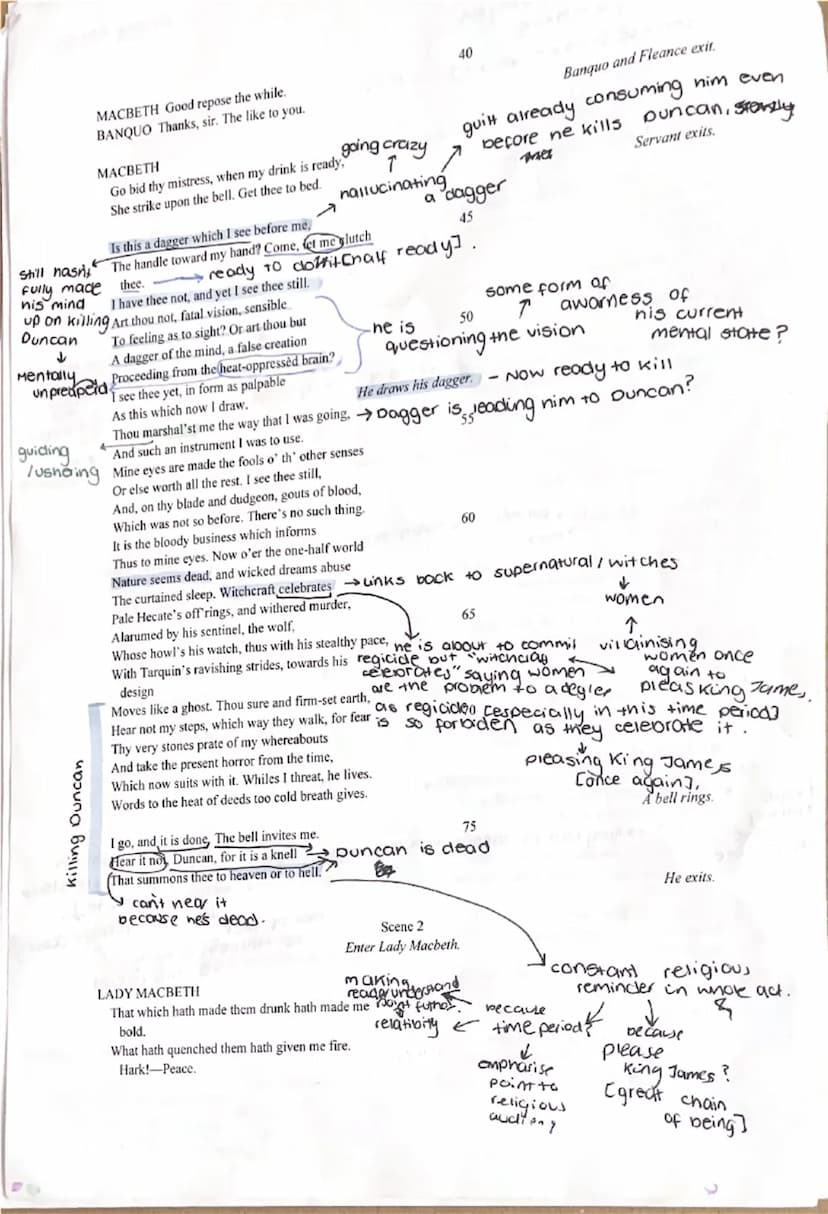 40
Banquo and Fleance exit.
MACBETH Good repose the while.
BANQUO Thanks, sir. The like to you.
guilt already consuming him even
before he kills Duncan.
going crazy
Servant exits.
MACBETH
Go bid thy mistress, when my drink is ready,
She strike upon the bell. Get thee to bed.
hallucinating
a dagger
45
Is this a dagger which I see before me,
The handle toward my hand? Come, let me clutch
thee.
ready to do it [half ready].
still hasn't
fully made
his mind
up on killing
Duncan
Mentally
unprepared
I have thee not, and yet I see thee still.
Art thou not, fatal vision, sensible
To feeling as to sight? Or art thou but
A dagger of the mind, a false creation
Proceeding from the heat-oppressèd brain?
50
he is
questioning the vision
some form of
awarness of
his current
mental state?
I see thee yet, in form as palpable
As this which now I draw.
He draws his dagger.
– Now ready to kill
Thou marshal'st me the way that I was going,
Dagger is leading him to Duncan?
55
guiding
/ushering
And such an instrument I was to use.
Mine eyes are made the fools o' th' other senses
Or else worth all the rest. I see thee still,
And, on thy blade and dudgeon, gouts of blood,
Which was not so before. There's no such thing.
60
It is the bloody business which informs
Thus to mine eyes. Now o'er the one-half world
Nature seems dead, and wicked dreams abuse
The curtained sleep. Witchcraft celebrates
Links back to supernatural/witches
women
Pale Hecate's off'rings, and withered murder,
65
Alarumed by his sentinel, the wolf,
Whose howl's his watch, thus with his stealthy pace,
With Tarquin's ravishing strides, towards his
design
he is about to commit
regicide but "witchcraft
celebrates" saying women
are the problem to a degree
as regicide [especially in this time period]
is so forbiden as they celebrate it.
villainising
women once
again to
pleas King James.
pleasing King James
[once again].
Moves like a ghost. Thou sure and firm-set earth,
Hear not my steps, which way they walk, for fear
Thy very stones prate of my whereabouts
And take the present horror from the time,
Which now suits with it. Whiles I threat, he lives.
Words to the heat of deeds too cold breath gives.
A bell rings.
Killing Duncan
75
I go, and it is done. The bell invites me.
Hear it not, Duncan, for it is a knell
That summons thee to heaven or to hell.
Duncan is dead
He exits.
can't hear it
because he's dead.
Scene 2
Enter Lady Macbeth.
constant religious
reminder in whole act.
LADY MACBETH
That which hath made them drunk hath made me
bold.
What hath quenched them hath given me fire.
Hark!—Peace.
making
reader understand
point
relatibity
because
time period?
emphasise
point to
religious
because
please
King James?
[great chain
of being]